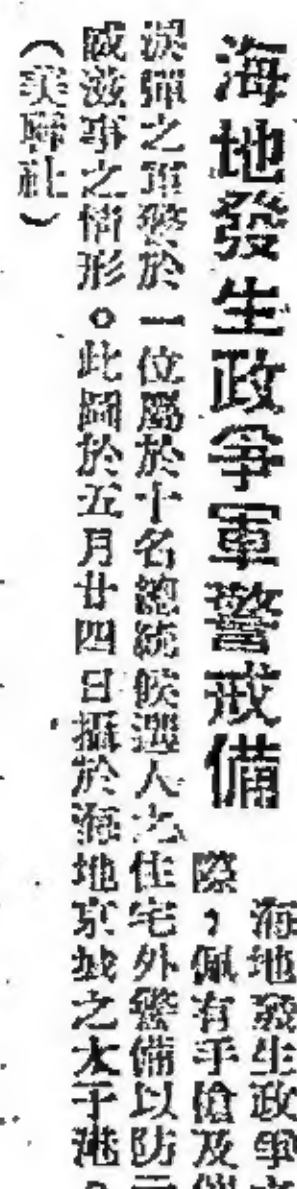 海地發生政爭軍警戒備
海地發生政爭
際，佩有手槍及催
淚彈之軍警於一位屬於十名總統候選人之住宅外警備以防示
威滋事之情形。此圖於五月廿四日攝於海地京城之太子港。
（美聯社）